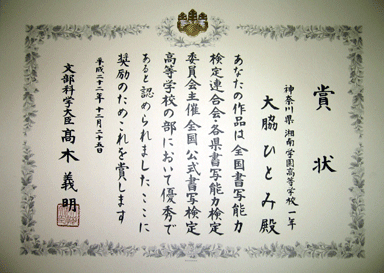 賞状
神奈川県 湘南学園高等学校 一年
大脇ひとみ殿
あなたの作品は全国書写能力
検定連合会・各県書写能力検定
委員会主催全国公式書写検定
高等学校の部において優秀で
あると認められましたここに
奨励のためこれを賞します
平成二十二年十二月二十五日
文部科学大臣 髙木義明